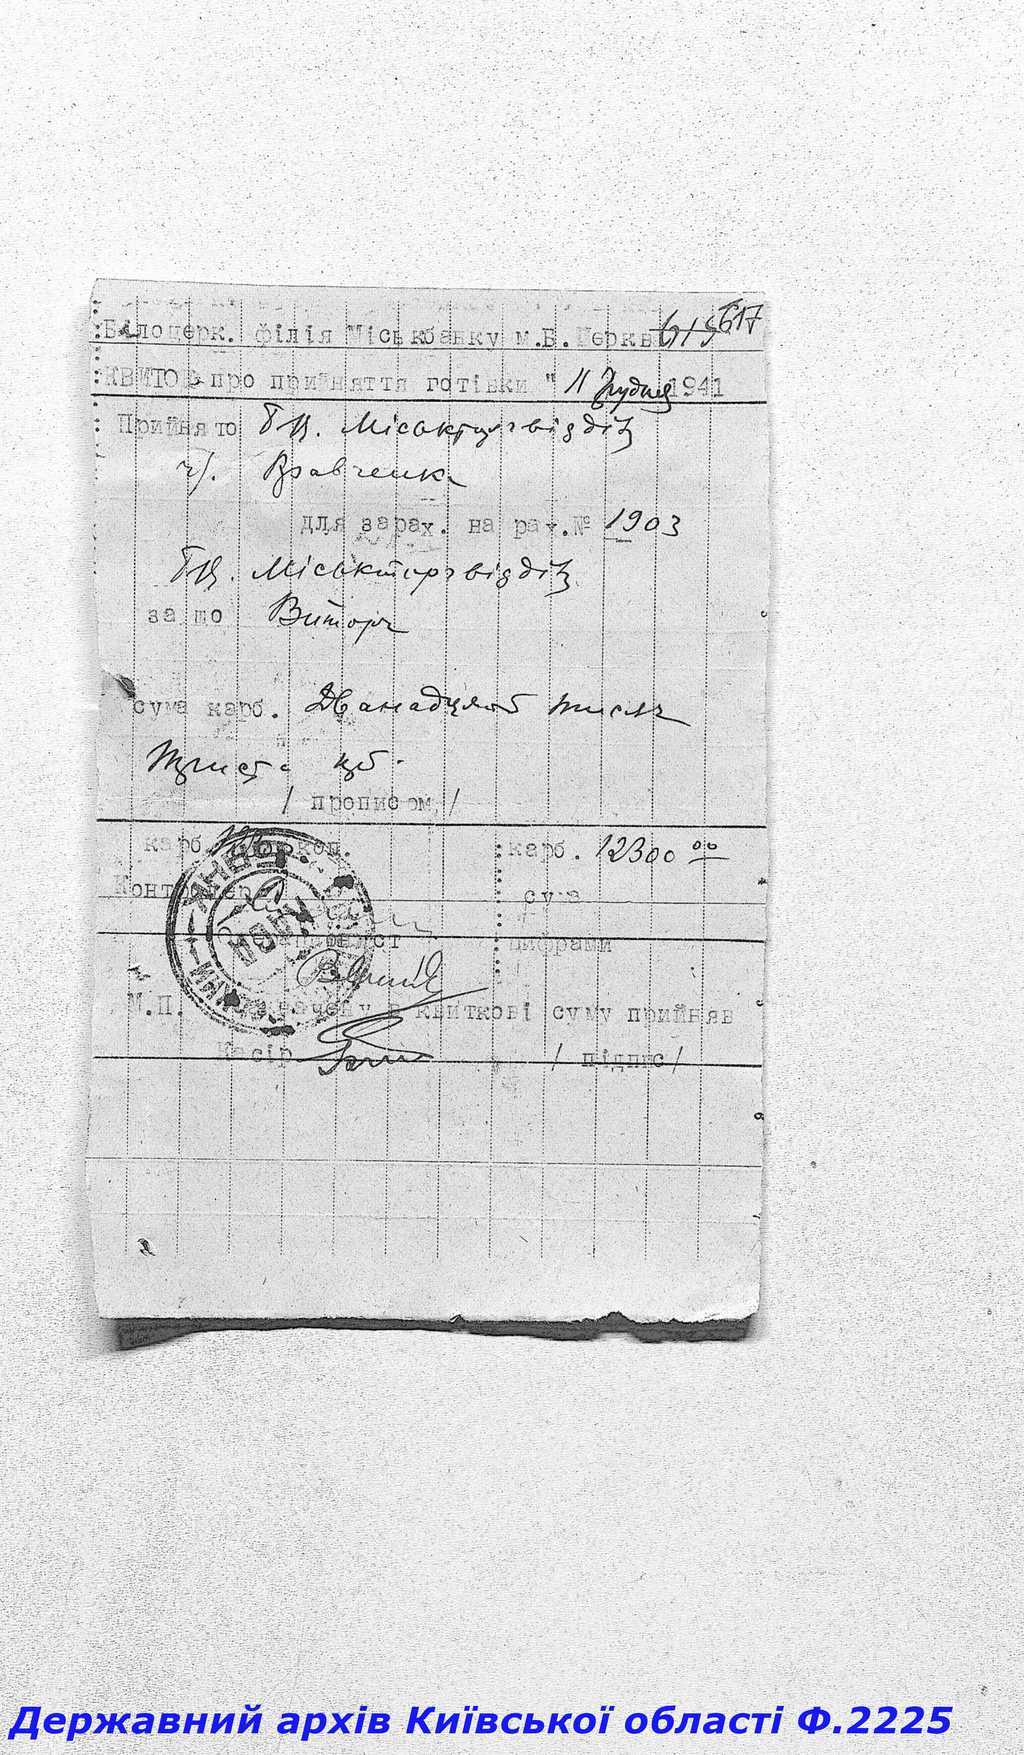 617
Білоцерк. філія Міськбанку м.Б.Церкв 615
КВИТОК про прийняття готівки " 11 Грудня 1941
Прийнято Міськторгвідділ
ч/. Кравченка
для зарах. на рах.№ 1903
Міськторгвідділ
за що Виторг
сума карб. Дванадцять тисяч
триста крб.
/ прописом /
карб. коп. карб. 12300 00
Контролер сума
цифрами
М.П. квиткові суму прийняв
Касір / підпис /
Державний архів Київської області Ф.2225